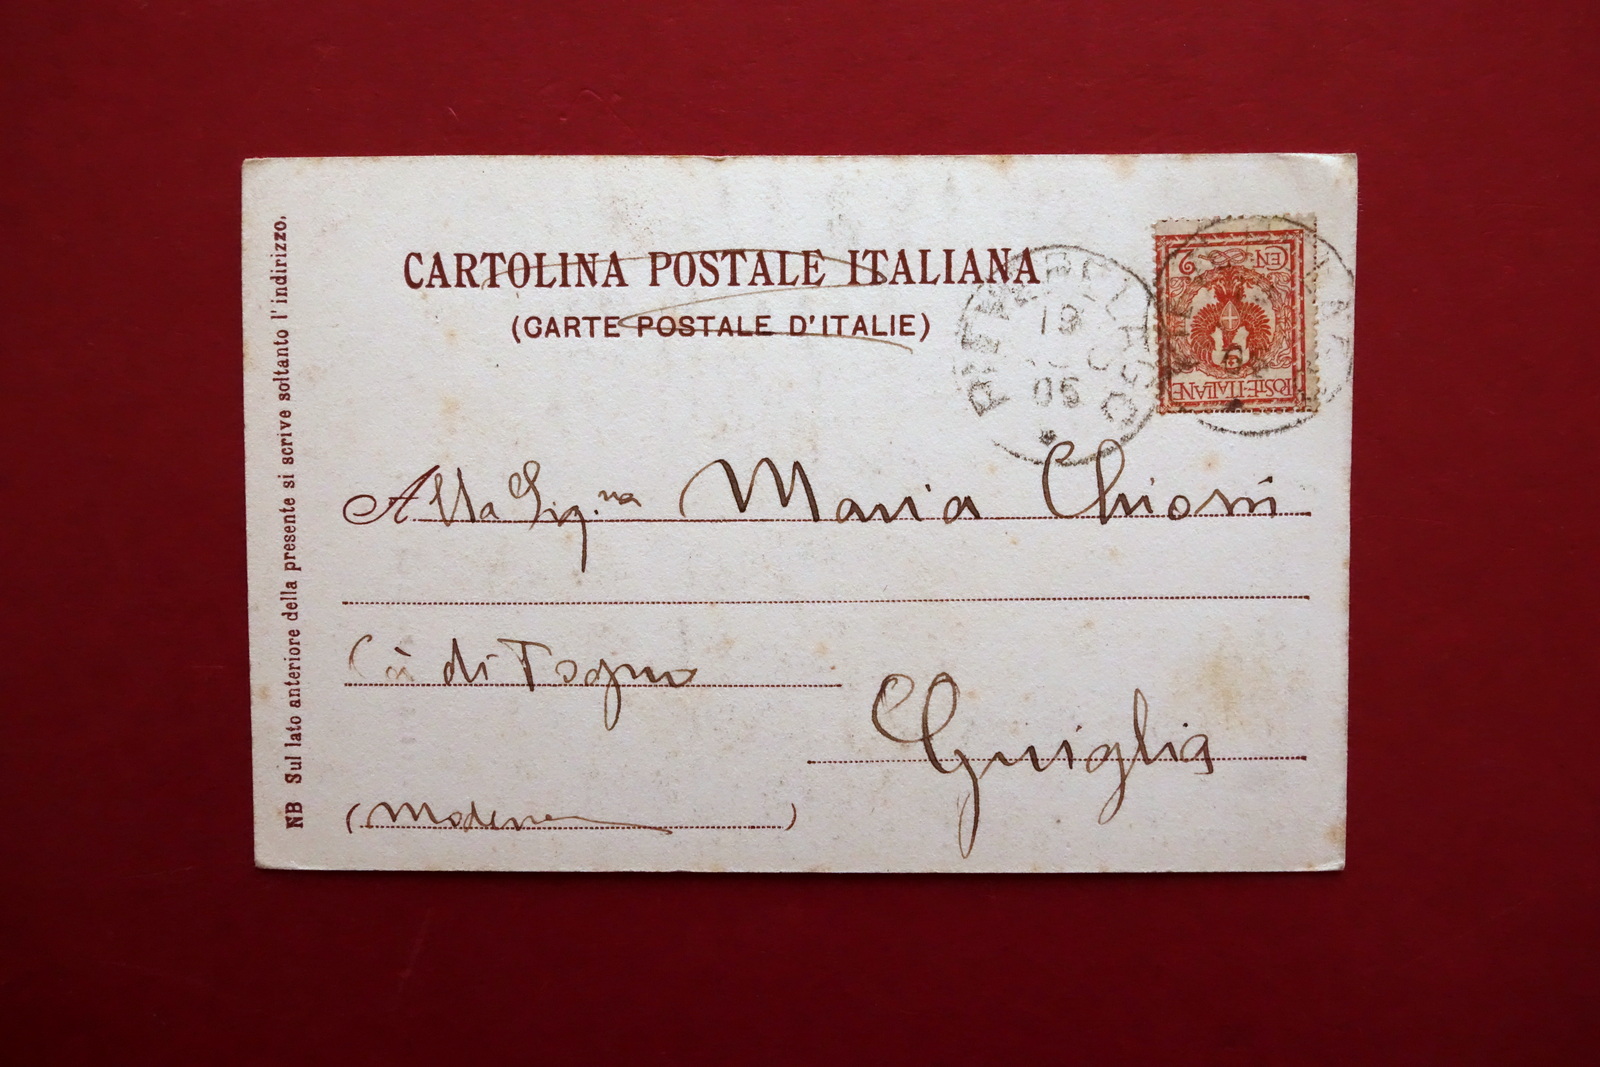 CARTOLINA POSTALE ITALIANA
(CARTE POSTALE D'ITALIE)
NB Sul lato anteriore della presente si scrive soltanto l'indirizzo.
19
05
2
CEN
POSTE-ITALIANE
Alla Sig.na Maria Chiossi
Cà di Togno
Guiglia
(Modena)